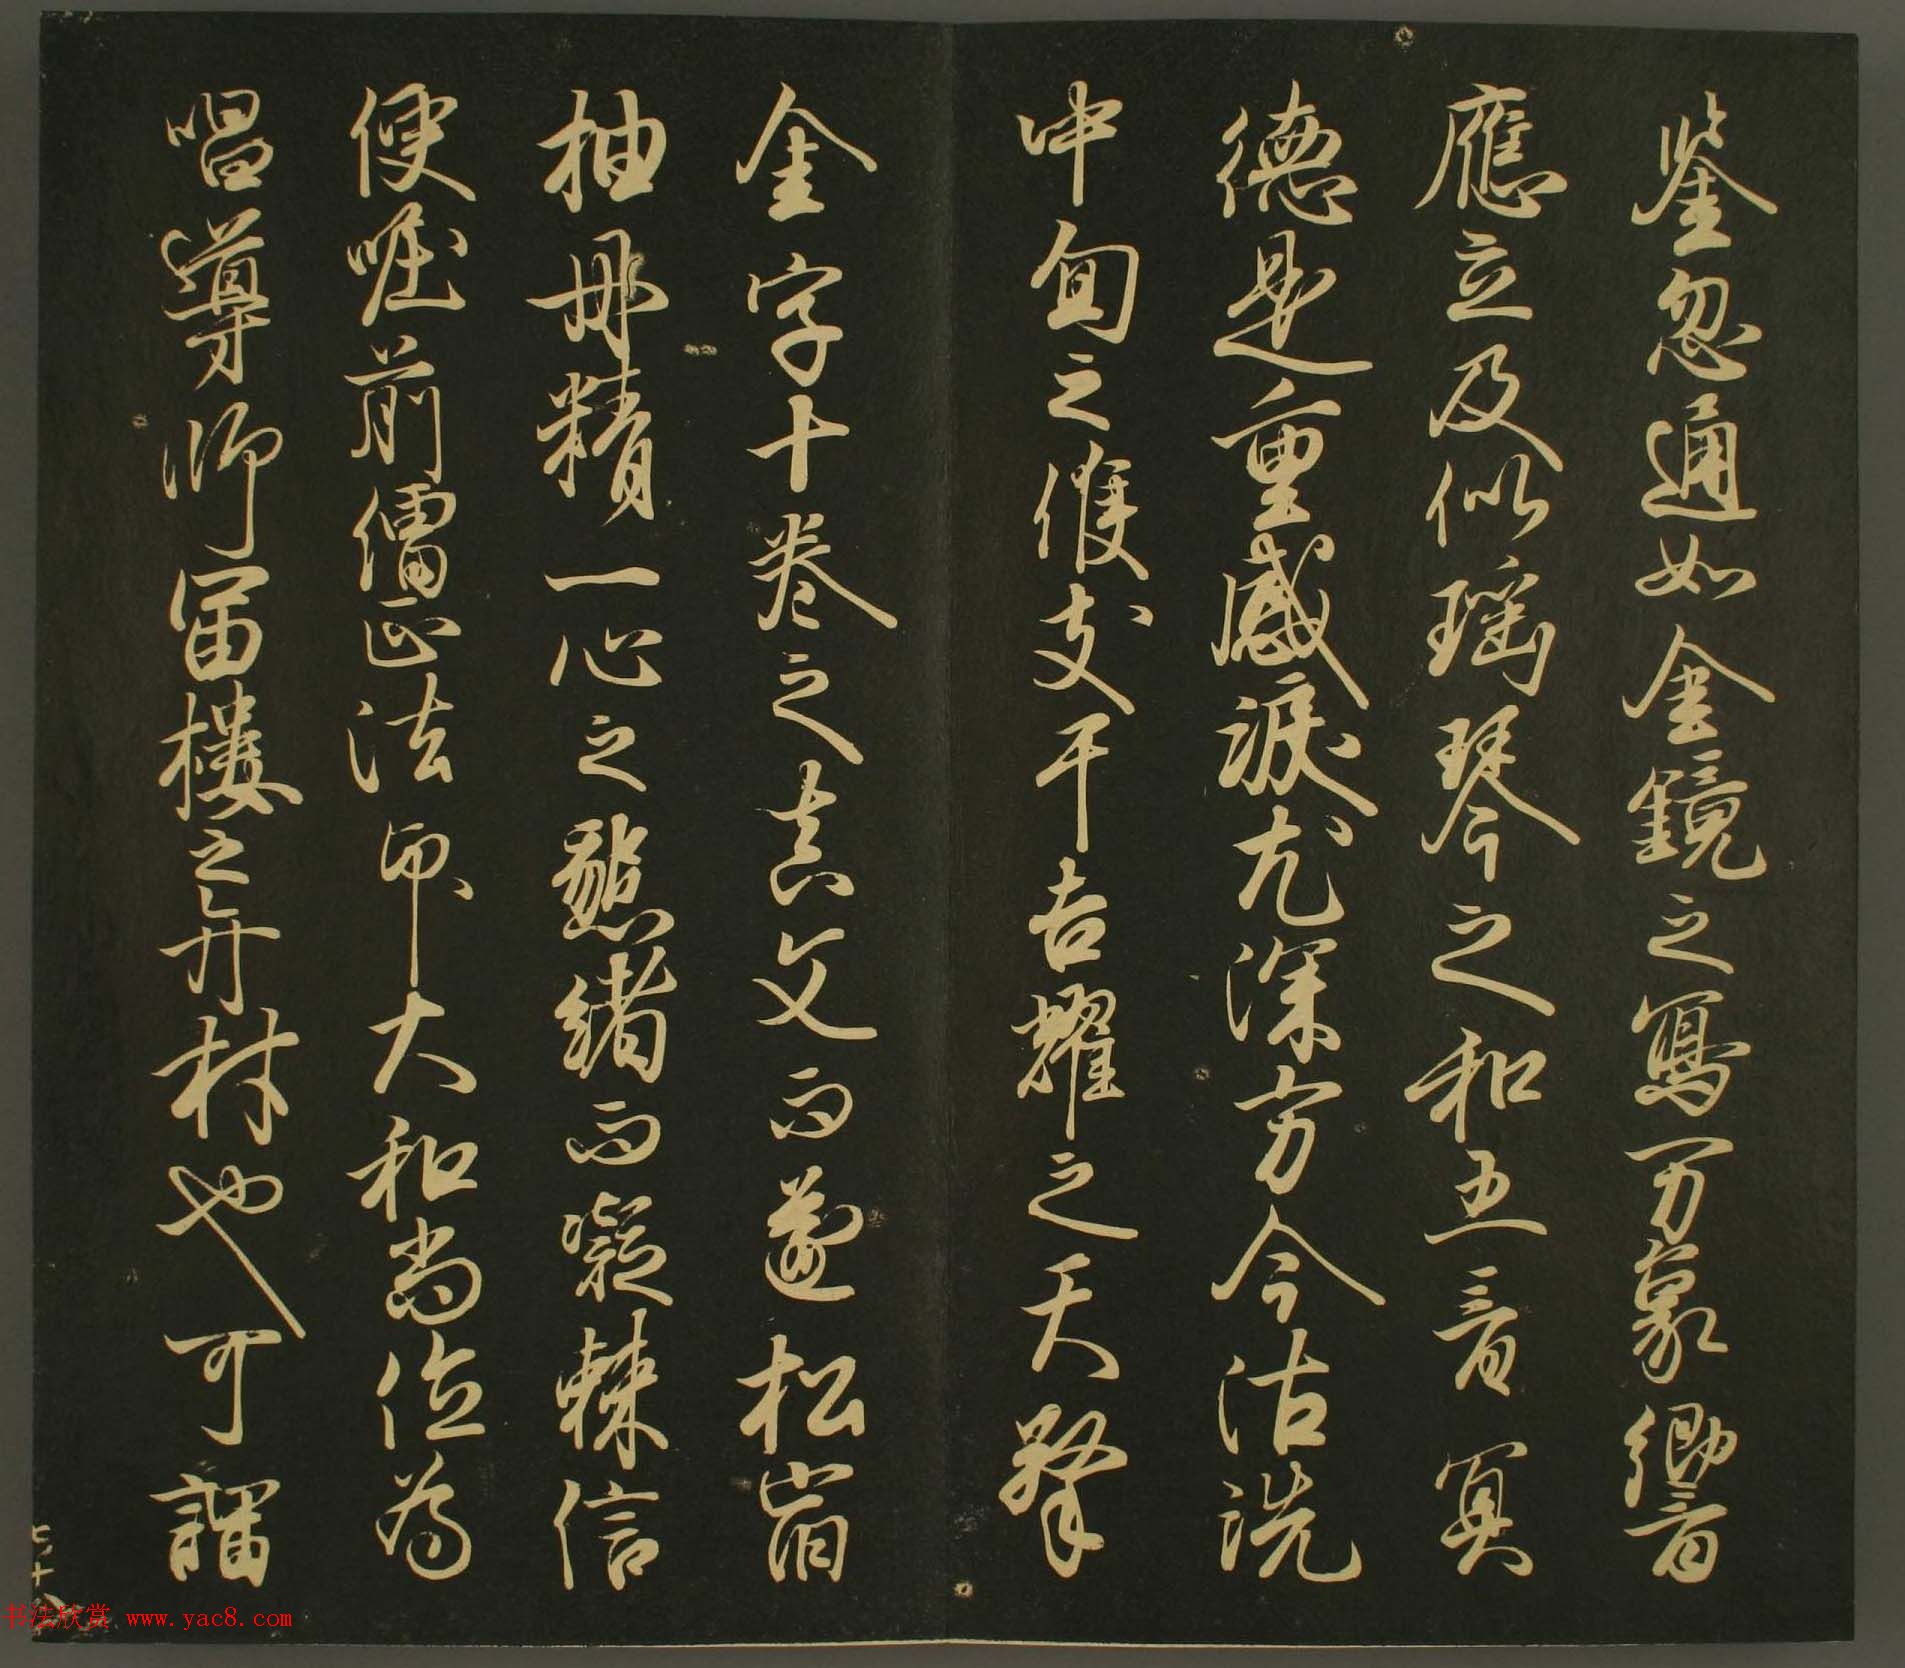 鋻忽通如金鏡之寫万象響
應立及似瑶琴之和五音冥
德是重感淚尤深方今沽洗
中旬之候支干吉曜之天擎
金字十卷之真文而邃松
抽丹精一心之懇緒而凝棘信
便啒前僧正法印大和尚位為
唱導師富樓之材也可謂
七十八
书法欣赏 www.yac8.com